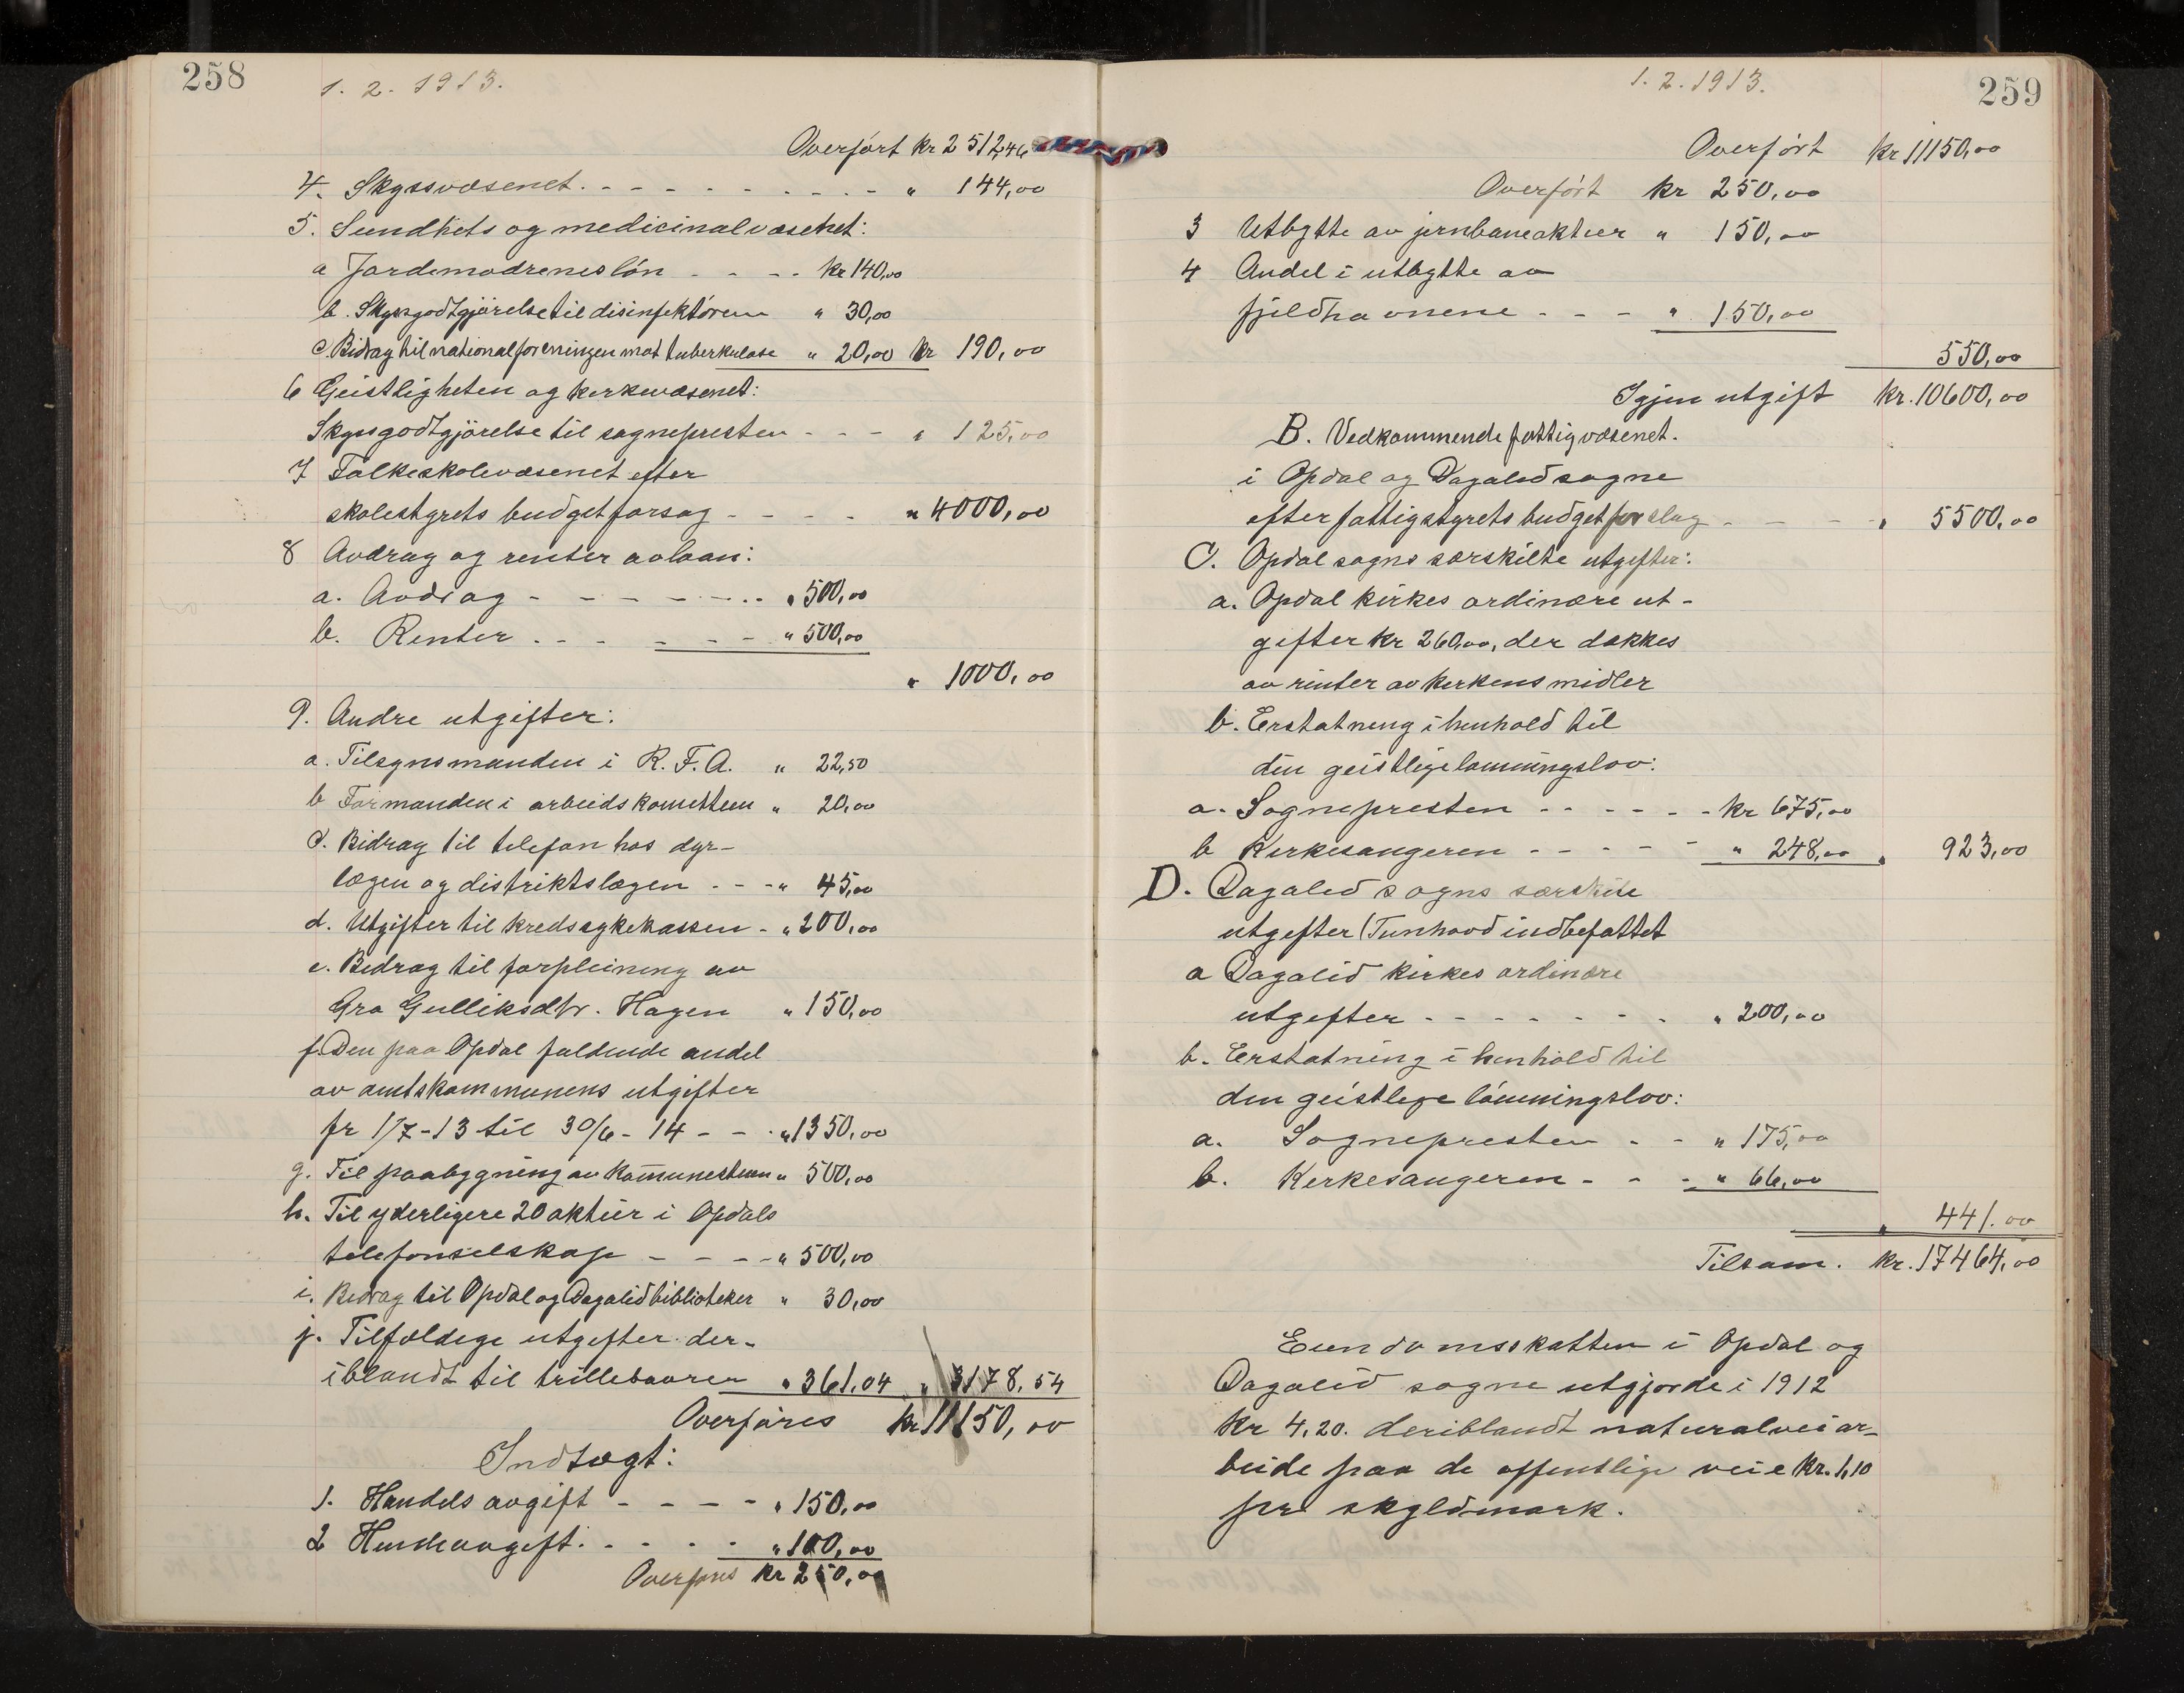 258
1. 2. 1913.
Overført kr 2512,46
4. Skyssvæsenet. - - - - - - - - - " 144,00
5. Sundhets og medicinalvæsenet:
a Jordemodreneslón - - - - kr 140,00
b. Skyssgodtgjörelse til disinfektóren " 30,00
c. Bidrag til nationalforeningen mot tuberkulose " 20,00 kr 190,00
6 Geistligheten og kirkevæsenet:
Skyssgodtgjörelse til sognepresten - - - " 125,00
7 Folkeskolevæsenet efter
skolestyrets budgetforsag - - - - " 4000,00
8 Avdrag og renter av laan:
a. Avdrag - - - - - - - " 500,00
b. Renter - - - - - - " 500,00
" 1000,00
9. Andre utgifter:
a. Tilsynsmanden i R. F. A. " 22,50
b Formanden i arbeidskomitteen " 20,00
c. Bidrag til telefon hos dyr-
lægen og distriktslægen - - - " 45,00
d. Utgifter til kredssykekassen - " 200,00
e. Bidrag til forpleining av
Gro Gulliksdtr. Hagen " 150,00
f. Den paa Opdal faldende andel
av amtskommunens utgifter
fr 1/7-13 til 30/6-14 - - - " 1350,00
g. Til paabygning av komunestuen " 500,00
h. Til yderligere 20 aktier i Opdals
telefonselskap - - - - " 500,00
i. Bidrag til Opdal og Dagalid biblioteker " 30,00
j. Tilfældige utgifter der-
iblandt til trillebaarer " 361,04 " 3178,54
Overføres kr 11150,00
Indtægt:
1. Handels avgift - - - - " 150,00
2 Hundeavgift. - - - - " 100,00
Overføres kr 250,00
1. 2. 1913.
259
Overført kr 11150,00
Overført kr 250,00
3 Utbytte av jernbaneaktier " 150,00
4 Andel i utbytte av
fjeldhavnene - - - " 150,00
550,00
Igjen utgift kr. 10600,00
B. Vedkommende fattigvæsenet.
i Opdal og Dagalid sogne
efter fattigstyrets budgetforslag - - - - " 5500,00
C. Opdal sogns særskilte utgifter:
a. Opdal kirkes ordinære ut-
gifter kr 260,00, der dækkes
av renter av kirkens midler
b. Erstatning i henhold til
den geistlige lønningslov:
a. Sognepresten - - - - - - kr 675,00
b Kirkesangeren - - - - - " 248,00 " 923,00
D. Dagalid sogns særskilte
utgifter (Tunhovd indbefattet
a Dagalid kirkes ordinære
utgifter - - - - - - - " 200,00
b. Erstatning i henhold til
den geistlige lónningslov:
a. Sognepresten - - " 175,00
b. Kirkesangeren - - - " 66,00
" 441.00
Tilsam. kr. 17464,00
Eiendomsskatten i Opdal og
Dagalid sogne utgjorde i 1912
kr 4,20. deriblandt naturalveiar-
beide paa de offentlige veie kr. 1,10
pr skyldmark.